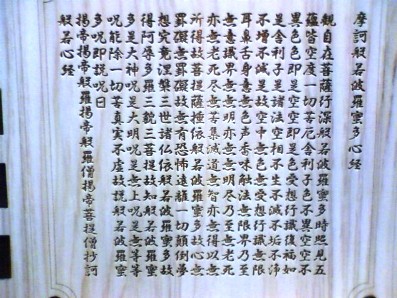 摩訶般若波羅蜜多心経
観自在菩薩行深般若波羅蜜多時照見五
蘊皆空度一切苦厄舎利子色不異空空不
異色色即是空空即是色受想行識亦復如
是舎利子是諸法空相不生不滅不垢不浄
不増不減是故空中無色無受想行識無眼
耳鼻舌身意無色声香味触法無眼界乃至
無意識界無無明亦無無明尽乃至無老死
亦無老死尽無苦集滅道無智亦無得以無
所得故菩提薩埵依般若波羅蜜多故心無
罣礙無罣礙故無有恐怖遠離一切顛倒夢
想究竟涅槃三世諸仏依般若波羅蜜多故
得阿耨多羅三藐三菩提故知般若波羅蜜
多是大神呪是大明呪是無上呪是無等等
呪能除一切苦真実不虚故説般若波羅蜜
多呪即説呪曰
揭帝揭帝般羅揭帝般羅僧揭帝菩提僧抄訶
般若心経